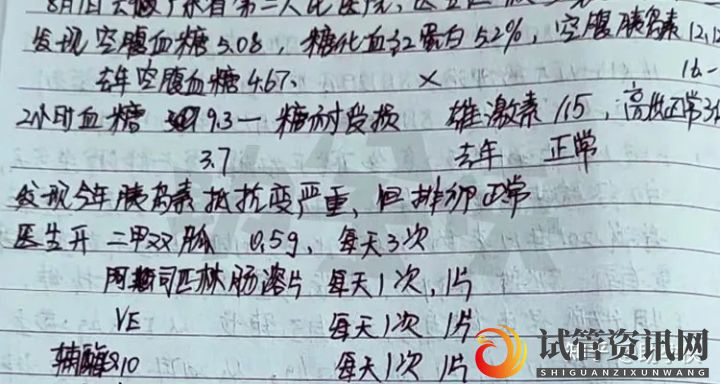 8月1日去做广东省第二人民医院,
发现空腹血糖 5.08, 糖化血红蛋白 5.2%, 空腹胰岛素 12.12
去年空腹血糖 4.67. × 16.
2小时血糖 9.3 — 糖耐受损 雄激素 1.15, 高出正常
3.7 去年 正常
发现今年胰岛素抵抗变严重, 但排卵正常
医生开 二甲双胍 0.5g, 每天3次
阿司匹林肠溶片 每天1次, 1片
VE 每天1次 1片
辅酶Q10 每天1次 1片
试管资讯网
SHIGUANZIXUNWANG